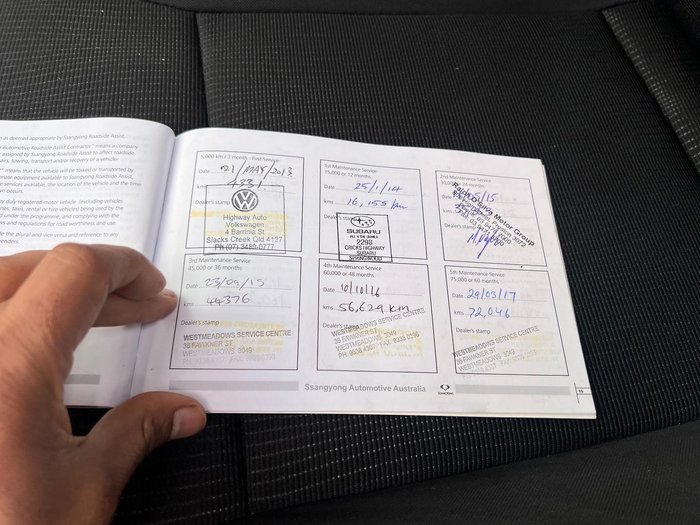 n as deemed appropriate by Ssangyong Roadside Assist.
Automotive Roadside Assist Contractor" means a company
assigned by Ssangyong Roadside Assist to affect roadside
airs, towing, transport and/or recovery of a vehicle).
" means that the vehicle will be towed or transported by
onate equipment available to Ssangyong Roadside Assist,
e services available, the location of the vehicle and the time
on occurs.
ny duly registered motor vehicle (including vehicles
nes, taxis, rental or hire vehicles) being used by the
d under the programme, and complying with the
s and regulations for road worthiness and use.
e the plural and vice versa and reference to any
enders.
5,000 km / 3 month - First Service
Date 021/MAY/2013
kms 4331
Dealer's stamp
Highway Auto
Volkswagen
4 Barrinia St
Slacks Creek Qld 4127
Ph (07) 3489-0777
1st Maintenance Service
15,000 or 12 months
Date 25/1/14
kms 16,155 km
Dealer's
SUBARU
ALL 4 THE DRIVER
2298
CRICKS HIGHWAY
SUBARU
SPRINGWOOD
2nd Maintenance Service
30,000 24 months
05/15
Motor Group
3073
Dealer's stamp
3rd Maintenance Service
45,000 or 36 months
Date 23/09/15
kms 44376
Dealer's stamp
WESTMEADOWS SERVICE CENTRE
36 FAWKNER ST
WESTMEADOWS 3049
4th Maintenance Service
60,000 or 48 months
Date 10/10/16
kms 56,629 km
Dealer's stamp
WESTMEADOWS SERVICE CENTRE
36 FAWKNER ST
WESTMEADOWS 3049
5th Maintenance Service
75,000 or 60 months
Date 29/03/17
kms 72,046
Dealer's stamp
WESTMEADOWS SERVICE CENTRE
36 FAWKNER ST
WESTMEADOWS 3049
Ssangyong Automotive Australia
SSANGYONG
19